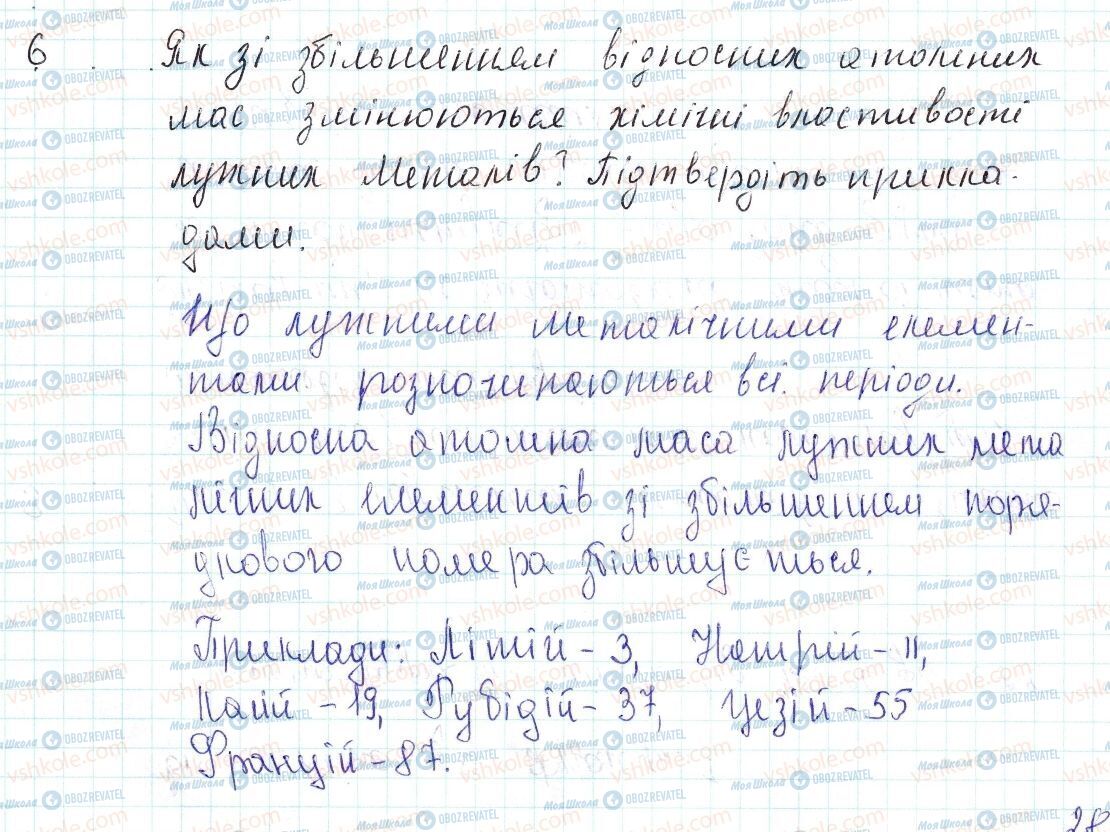 6 . Як зі збільшенням відносних атомних
мас змінюються хімічні властивості
лужних металів? Підтвердіть прикла-
дами.
Що лужними металічними елемен-
тами розпочинаються всі періоди.
Відносна атомна маса лужних мета
лічних елементів зі збільшенням поря-
дкового номера збільшується.
Приклади: Літій - 3, Натрій - 11,
Калій - 19, Рубідій - 37, Цезій - 55
Францій - 87.
28